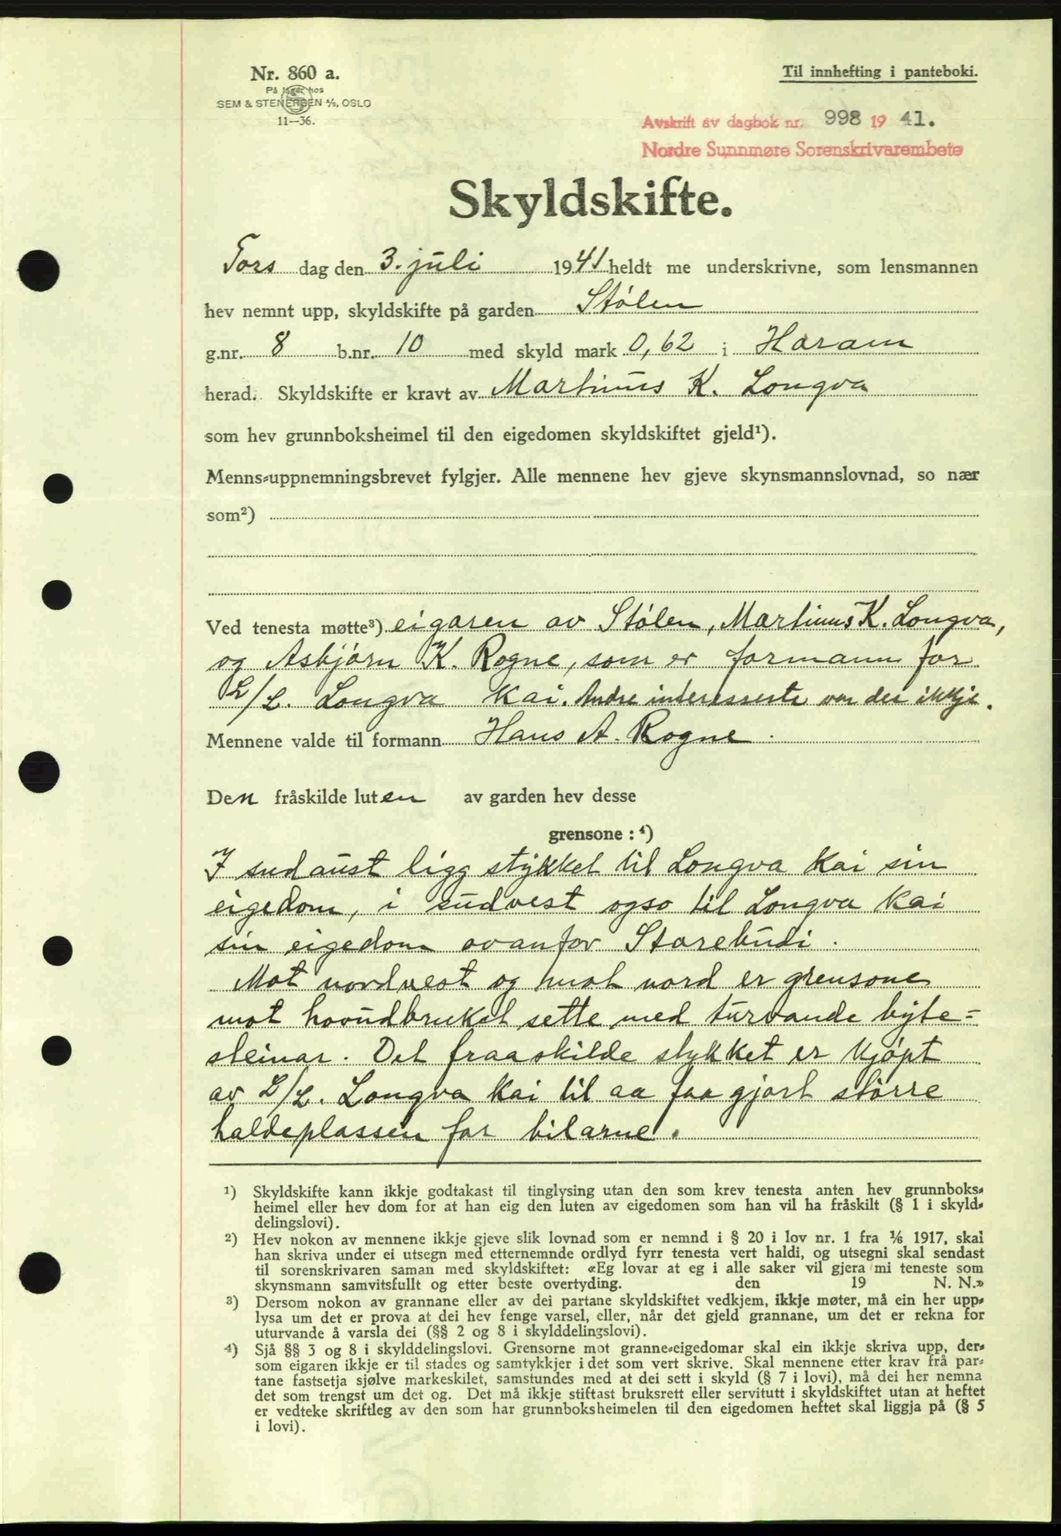 Nr. 860 a.
På lager hos
SEM & STENERSEN A/S, OSLO
11—36.
Til innhefting i panteboki.
Avskrift av dagbok nr. 998 19 41.
Nordre Sunnmøre Sorenskrivarembete
Skyldskifte.
Tors dag den 3. juli 1941 heldt me underskrivne, som lensmannen
hev nemnt upp, skyldskifte på garden Stølen
g.nr. 8 b.nr. 10 med skyld mark 0,62 i Haram
herad. Skyldskifte er kravt av Martinus K. Longva
som hev grunnboksheimel til den eigedomen skyldskiftet gjeld¹).
Menns-uppnemningsbrevet fylgjer. Alle mennene hev gjeve skynsmannslovnad, so nær
som²)
Ved tenesta møtte³) eigaren av Stølen, Martinus K. Longva,
og Asbjørn K. Rogne, som er formann for
L/L. Longva kai. Andre interesserte var der ikkje.
Mennene valde til formann Hans A. Rogne.
Den fråskilde luten av garden hev desse
grensone: ⁴)
I sudaust ligg stykket til Longva Kai sin
eigedom, i sudvest ogso til Longva Kai
sin eigedom ovanfor Storebudi.
Mot nordvest og mot nord er grensone
mot hovudbruket sette med turvande byte=
steinar. Det fraaskilde stykket er kjøpt
av L/L. Longva Kai til aa faa gjort større
haldeplassen for bilarne.
¹) Skyldskifte kann ikkje godtakast til tinglysing utan den som krev tenesta anten hev grunnboks-
heimel eller hev dom for at han eig den luten av eigedomen som han vil ha fråskilt (§ 1 i skyld-
delingslovi).
²) Hev nokon av mennene ikkje gjeve slik lovnad som er nemnd i § 20 i lov nr. 1 fra 1/6 1917, skal
han skriva under ei utsegn med etternemnde ordlyd fyrr tenesta vert haldi, og utsegni skal sendast
til sorenskrivaren saman med skyldskiftet: «Eg lovar at eg i alle saker vil gjera mi teneste som
skynsmann samvitsfullt og etter beste overtyding. den 19 N. N.»
³) Dersom nokon av grannane eller av dei partane skyldskiftet vedkjem, ikkje møter, må ein her upp-
lysa um det er prova at dei hev fenge varsel, eller, når det gjeld grannane, um det er rekna for
uturvande å varsla dei (§§ 2 og 8 i skylddelingslovi).
⁴) Sjå §§ 3 og 8 i skylddelingslovi. Grensorne mot granne-eigedomar skal ein ikkje skriva upp, der-
som eigaren ikkje er til stades og samtykkjer i det som vert skrive. Skal mennene etter krav frå par-
tane fastsetja sjølve markeskilet, samstundes med at dei sett i skyld (§ 7 i lovi), må dei her nemna
det som trengst um det og. Det må ikkje stiftast bruksrett eller servitutt i skyldskiftet utan at heftet
er vedteke skriftleg av den som har grunnboksheimelen til den eigedomen heftet skal liggja på (§ 5
i lovi).